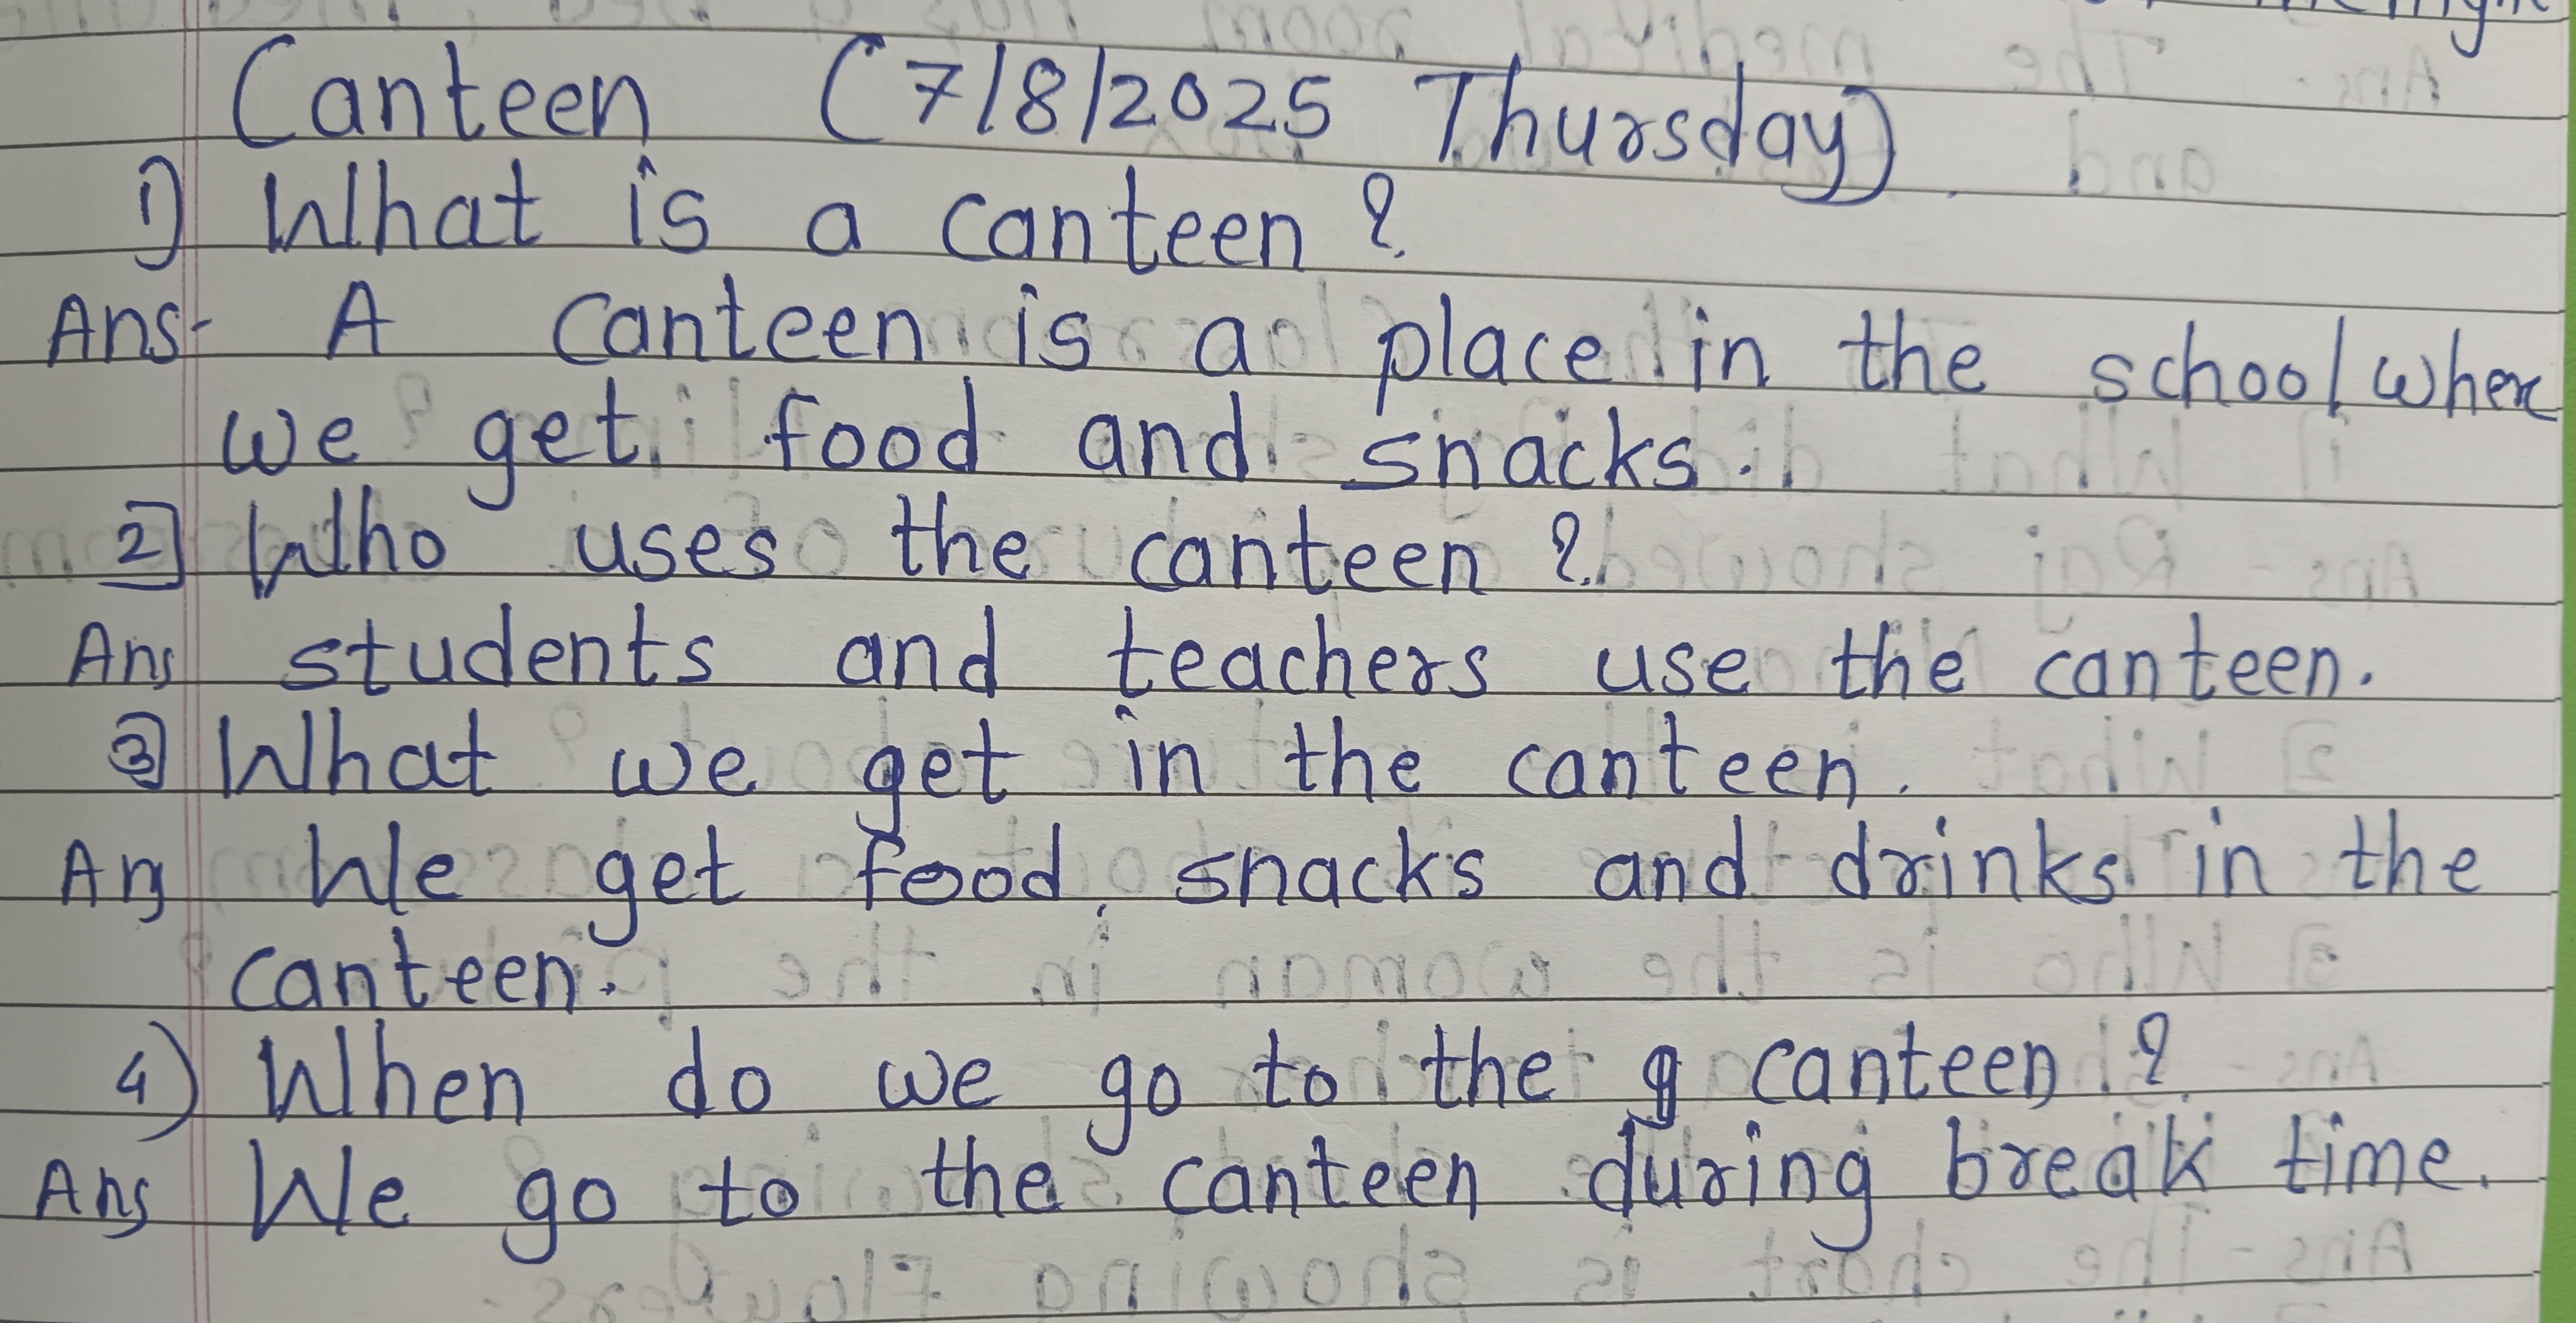 Canteen (7/8/2025 Thursday)
1) What is a canteen?
Ans- A canteen is a place in the school where
we get food and snacks.
2) Who uses the canteen?
Ans students and teachers use the canteen.
3) What we get in the canteen.
Ans We get food, snacks and drinks in the
canteen.
4) When do we go to the canteen?
Ans We go to the canteen during break time.